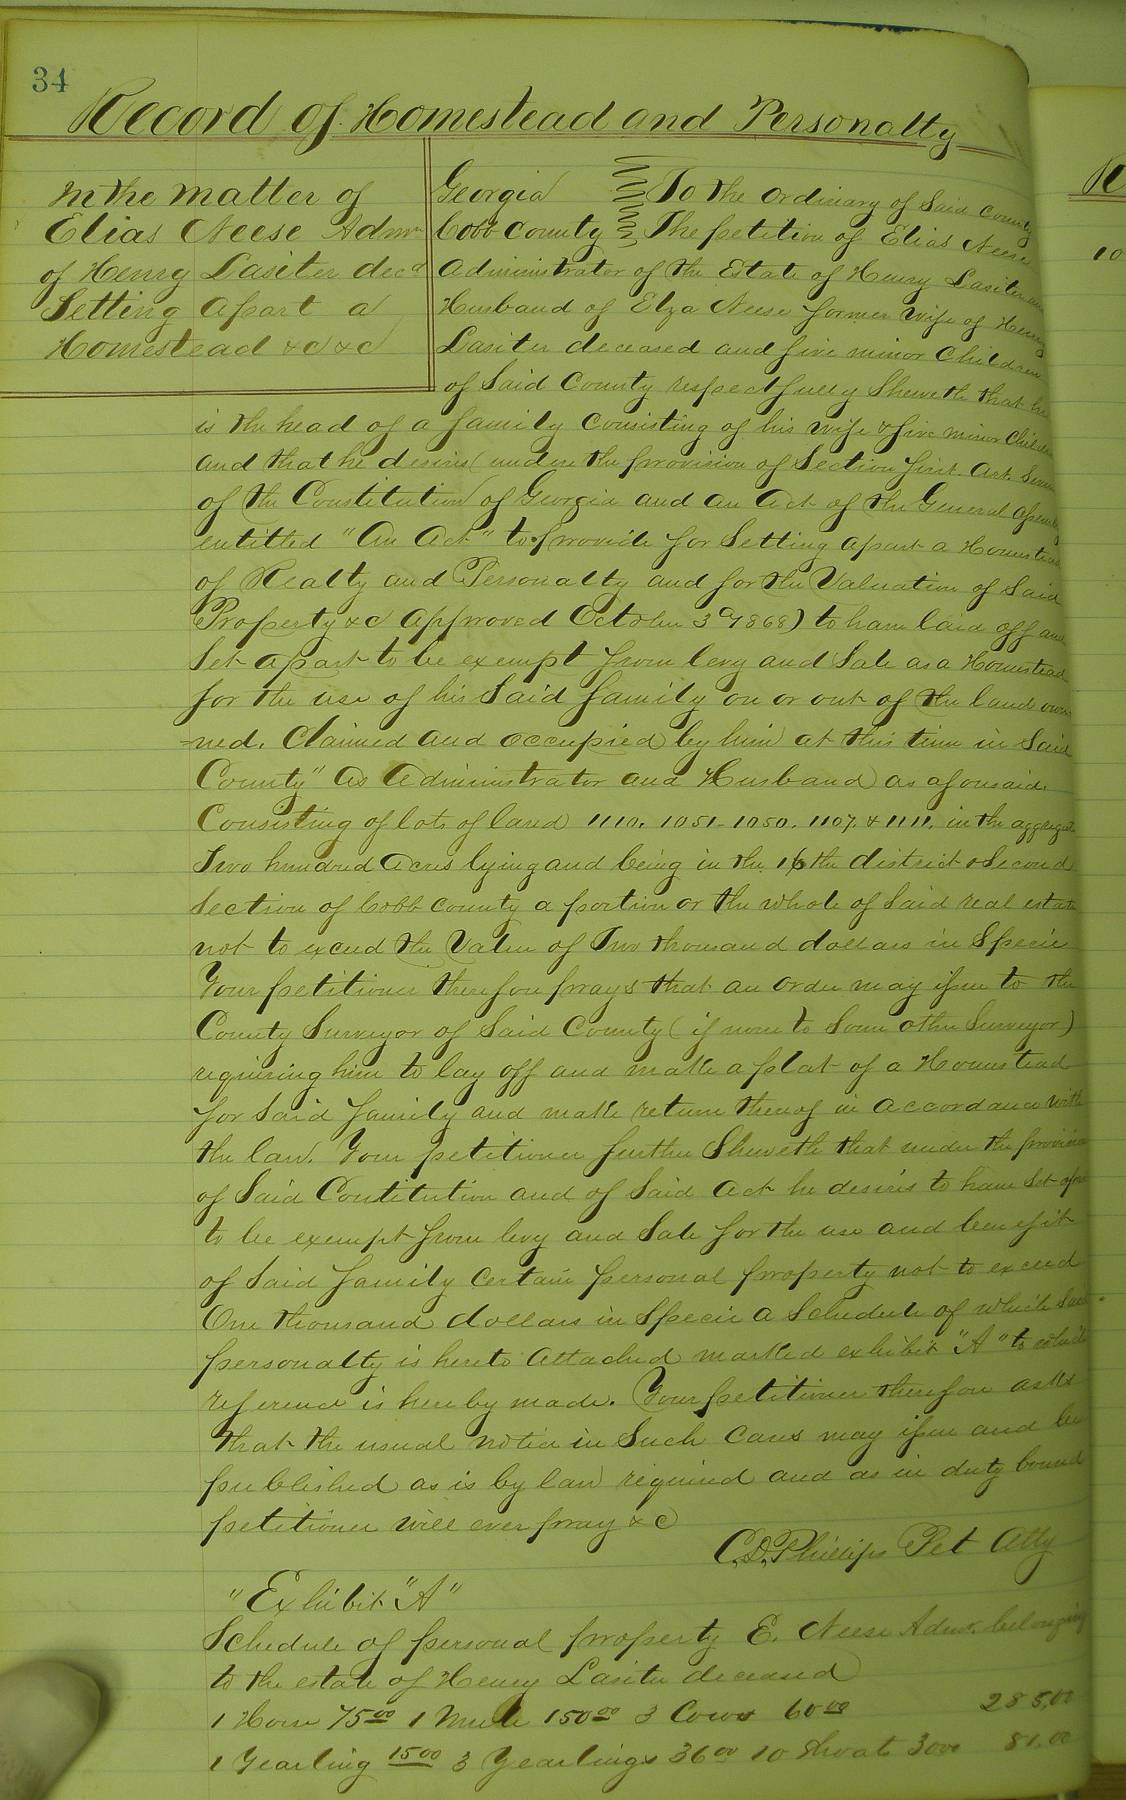 34
Record of Homestead and Personalty
In the matter of
Elias Neese Admr
of Henry Lasiter decd
Setting apart a
Homestead &c &c
Georgia To the Ordinary of Said County
Cobb County The petition of Elias Neese
Administrator of the Estate of Henry Lasiter
Husband of Elza Neese former Wife of Henry
Lasiter deceased and five minor Children
of Said County respectfully Sheweth that he
is the head of a family Consisting of his wife & five minor Children
and that he desires (under the provision of Section first Art. Seven
of the Constitution of Georgia and an Act of the General Assembly
entitled "An Act" to provide for Setting apart a Homestead
of Realty and Personalty and for the Valuation of Said
Property &c approved October 3d 1868) to have laid off and
Set apart to be exempt from levy and Sale as a Homestead
for the use of his Said family on or out of the land ow-
-ned, Claimed and occupied by him at this time in Said
County" as Administrator and Husband as aforesaid.
Consisting of lots of land 1110. 1051. 1050. 1107. & 1111. in the aggregate
Two hundred Acres lying and being in the 16th district & Second
Section of Cobb County a portion or the whole of Said real estate
not to exceed the Value of Two thousand dollars in Specie
Your petitioner therefore prays that an order may issue to the
County Surveyor of Said County (if none to Some other Surveyor)
requiring him to lay off and make a plat of a Homestead
for Said family and make return thereof in accordance with
the law. Your petitioner further Sheweth that under the provision
of Said Contitution and of Said Act he desires to have Set apart
to be exempt from levy and Sale for the use and benefit
of Said family Certain personal property not to exceed
One thousand dollars in Specie a Schedule of which Said
personalty is hereto Attached marked exhibit "A" to which
reference is hereby made. Your petitioner therefore asks
that the usual notice in Such Cases may issue and be
published as is by law required and as in duty bound
petitioner will ever pray &c
C.D. Phillips Pet Atty
"Exhibit "A"
Schedule of personal property E. Neese Admr. belonging
to the estate of Henry Lasiter deceased
1 Horse 75.00 1 Mule 150.00 3 Cows 60.00 285.00
1 Yearling 15.00 3 Yearlings 36.00 10 Shoats 30.00 81.00
R
10